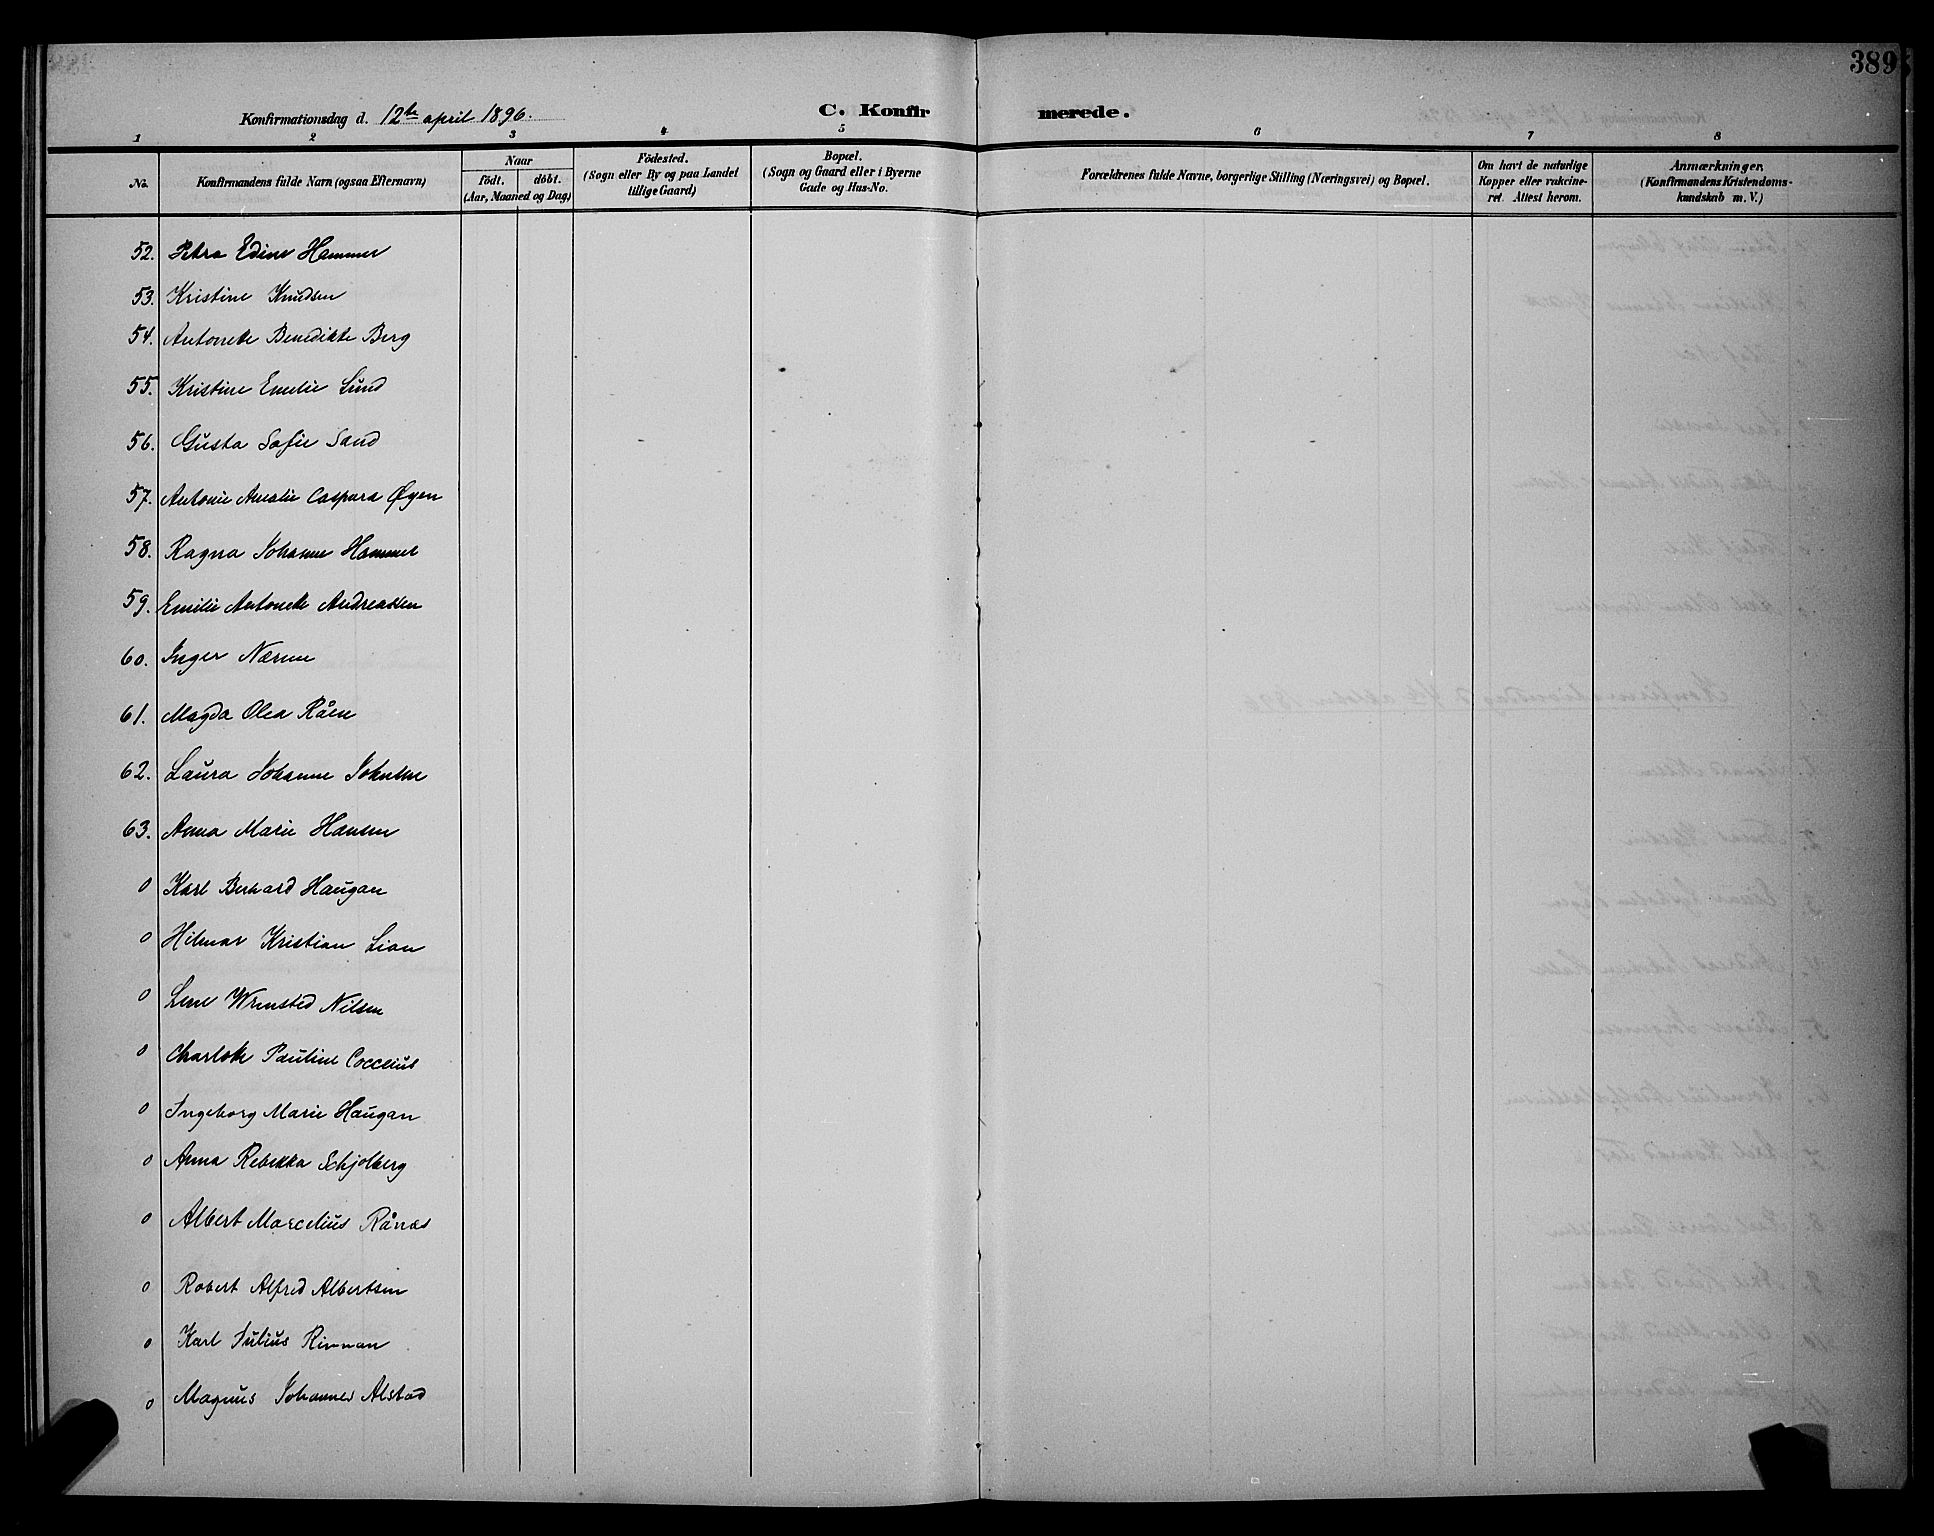 389
Konfirmationsdag d. 12te april 1896.
C. Konfirmerede.
1 2 3 4 5 6 7 8
No.
Konfirmandens fulde Navn (ogsaa Efternavn)
Naar
födt. döbt.
(Aar, Maaned og Dag)
Födested.
(Sogn eller By og paa Landet
tillige Gaard)
Bopæl.
(Sogn og Gaard eller i Byerne
Gade og Hus-No.
Forældrenes fulde Navne, borgerlige Stilling (Næringsvei) og Bopæl.
Om havt de naturlige
Kopper eller vakcine-
ret. Attest herom.
Anmærkninger.
(Konfirmandens Kristendoms-
kundskab m. V.)
52. Petra Edine Hammer
53. Kristine Knudsen
54. Antonette Benedikte Berg
55. Kristine Emelie Lund
56. Gusta Sofie Sand
57. Antonie Amalie Caspara Øyen
58. Ragna Johanne Hammer
59. Emilie Antonette Andreassen
60. Inger Nærum
61. Magda Olea Råen
62. Laura Johanne Johnsen
63. Anna Marie Hansen
0 Karl Berhard Haugan
0 Hilmar Kristian Lian
0 Lene Wrmsted Nilsen
0 Charlotte Pauline Coccelius
0 Ingeborg Marie Haugan
0 Anna Rebekka Schjolberg
0 Albert Marcelius Rånes
0 Robert Alfred Albertsen
0 Karl Julius Rinnan
0 Magnus Johannes Alstad